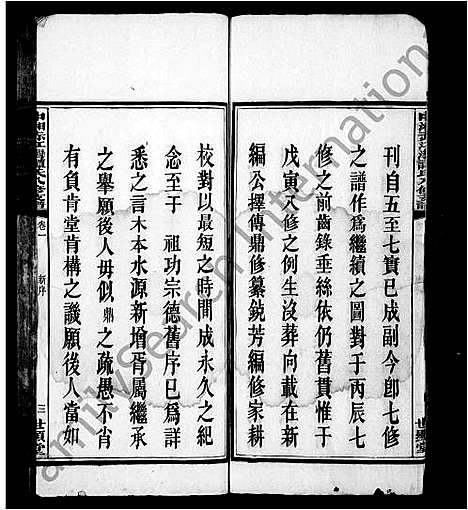 刊自五至七寶已成副今卽七修
之譜作爲繼續之圖對于丙辰七
修之前齒錄垂絲依仍舊貫惟于
戊寅八修之例生沒葬向載在新
編公擇傳鼎修纂銑芳編修家耕
校對以最短之時間成永久之紀
念至于 祖功宗德舊序已爲詳
悉之言木本水源新增胥屬繼承
之舉願後人毋似鼎之疏愚不至
有負肯堂肯構之譏願後人當如
卷一
新序
三
世顯堂
FamilySearch International